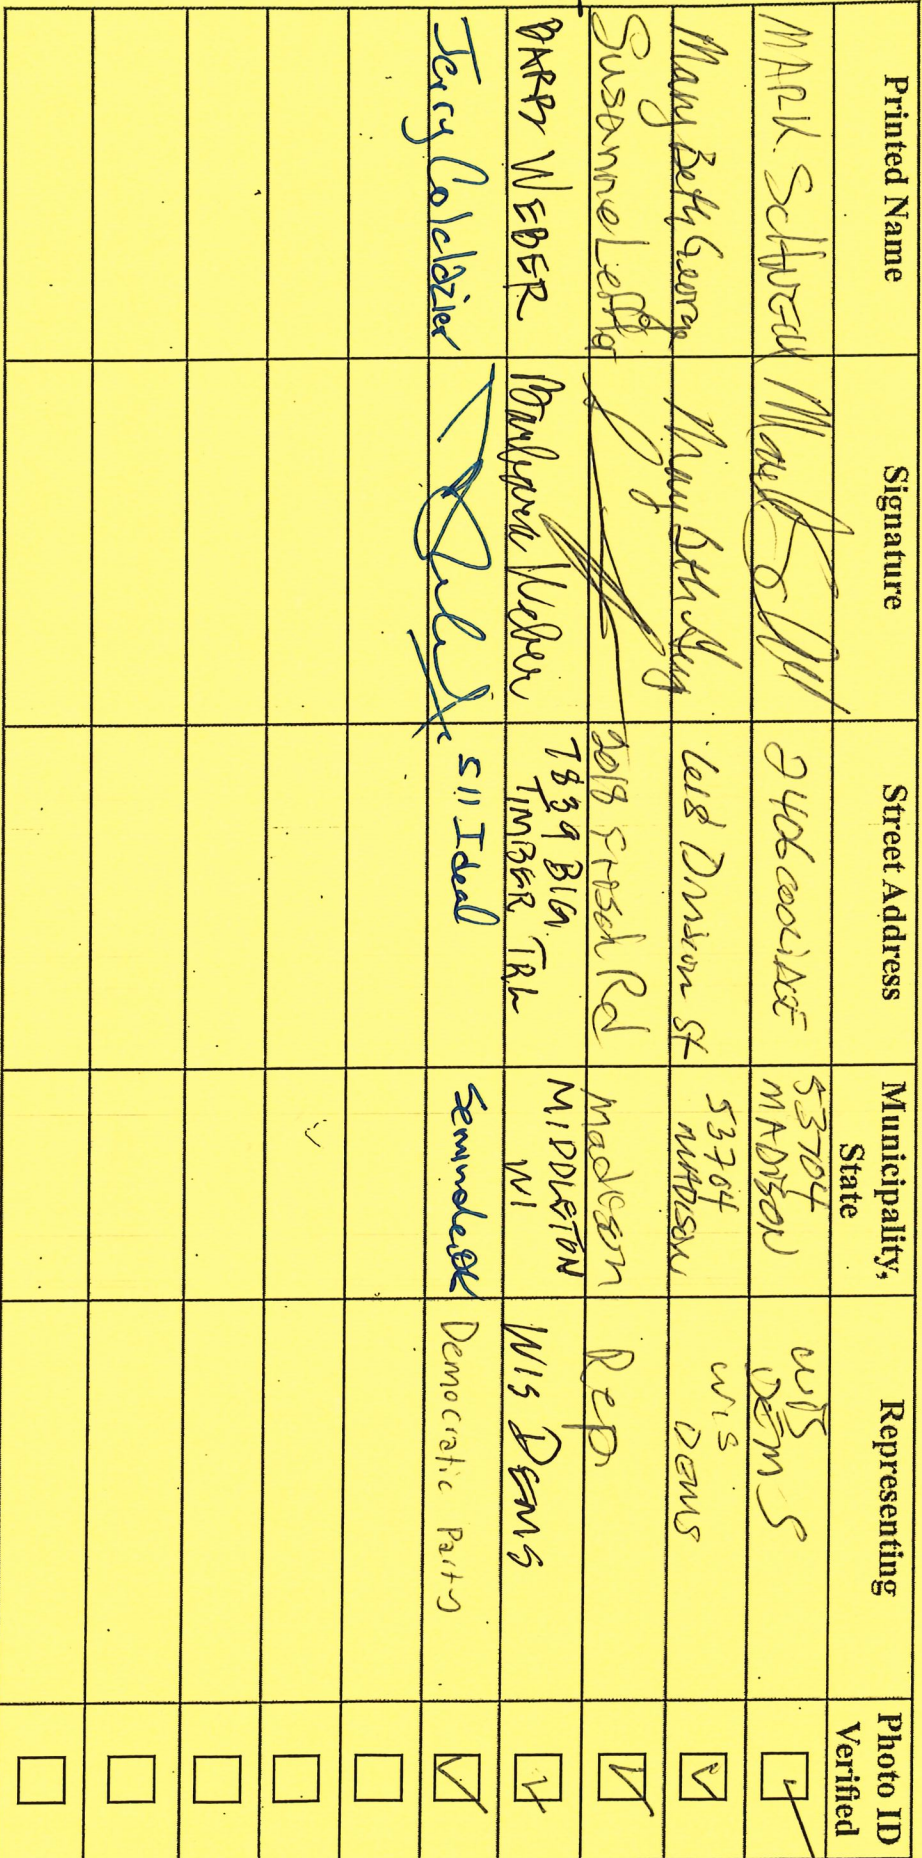 Printed Name
Signature
Street Address
Municipality, State
Representing
Photo ID Verified
MARK
2406
53704
MADISON
WIS
DEMS
Mary Beth George
Mary Beth
Division St
53704
MADISON
WIS
DEMS
Susanne
2018 Rd
Madison
Rep
BARB WEBER
Barbara Weber
7839 BIG
TIMBER TRL
MIDDLETON
WI
WIS DEMS
Jerry
511 Ideal
Democratic Party